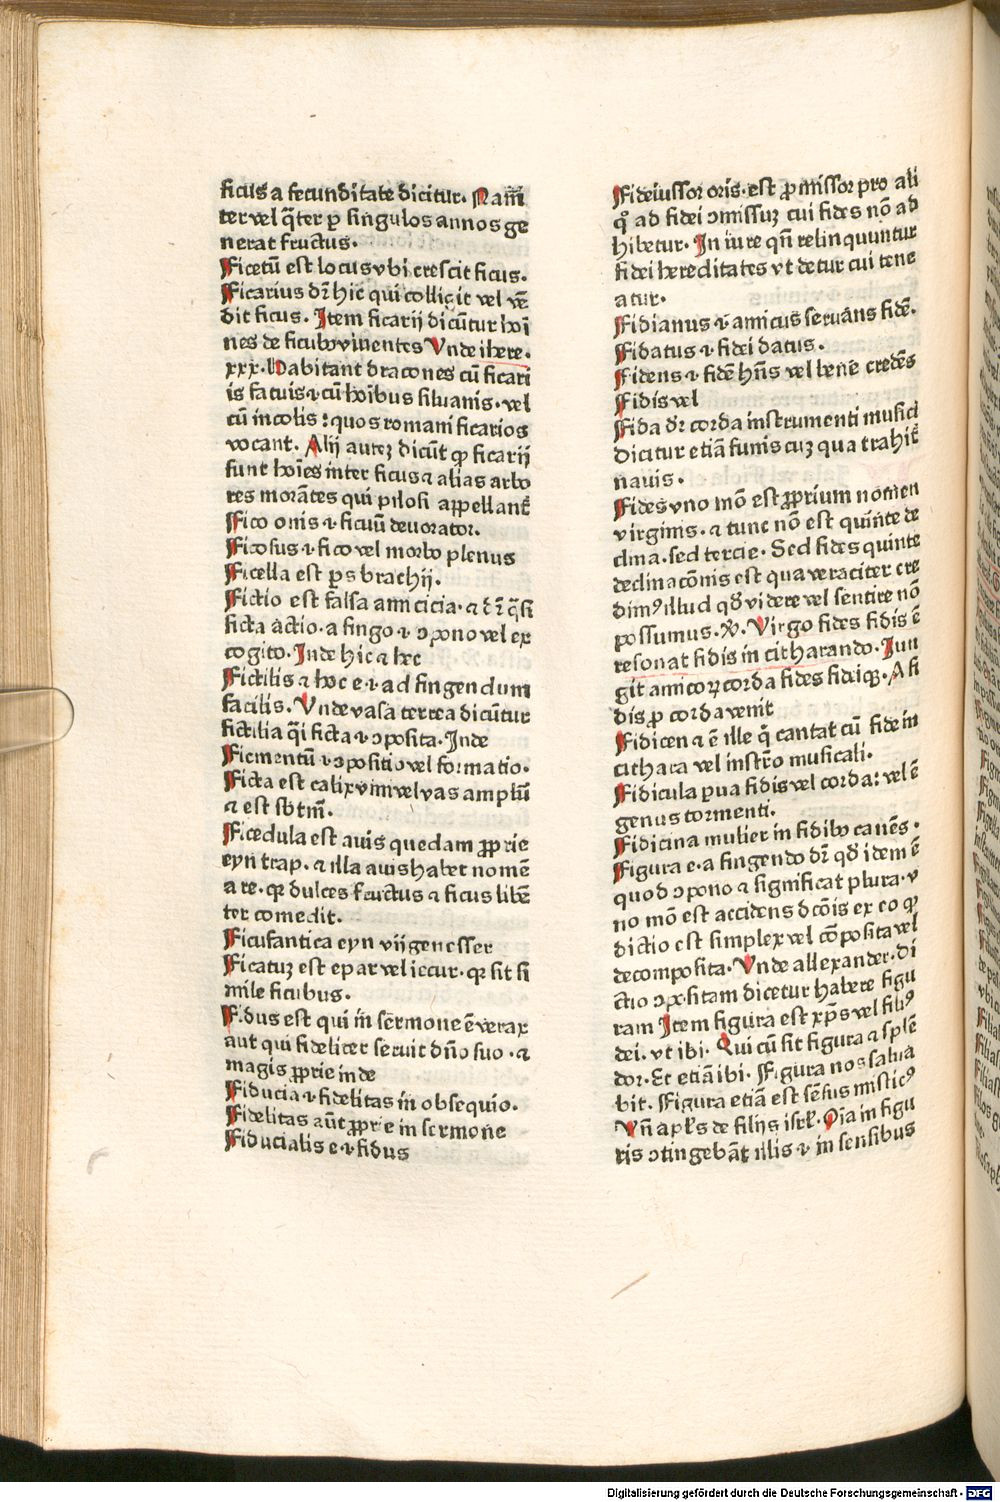 ficus a fecunditate dicitur. Nam̄
ter vel q̄ter ꝑ singulos annos ge
nerat fructus.
Ficetū est locus vbi crescit ficus.
Ficarius dr̄ hic qui colligit vel vē
dit ficus. Item ficarij dicūtur hoī
nes de ficubꝰ viuentes Vnde ihere.
xxx. Habitant dracones cū ficari
is fatuis ⁊ cū hoībus siluanis. vel
cū incolis: quos romani ficarios
vocant. Alij autez dicūt ꝙ ficarij
sunt hoīes inter ficus ⁊ alias arbo
res morātes qui pilosi appellant̄
Fico onis .i. ficuū deuorator.
Ficosus .i. fico vel morbo plenus
Ficella est ꝑs brachij.
Fictio est falsa amicicia. ⁊ dr̄ q̄si
ficta actio. a fingo .i. ɔpono vel ex
cogito. Inde hic ⁊ hec
Fictilis ⁊ hoc e .i. ad fingendum
facilis. Vnde vasa terrea dicūtur
fictilia q̄i ficta ⁊ ɔposita. Inde
Ficmentū .i. ɔpositio vel formatio.
Ficta est calix vini vel vas amplū
⁊ est sb̄tm̄.
Ficedula est auis quedam ꝓprie
eyn trap. ⁊ illa auis habet nomē
a re. qꝛ dulces fructus ⁊ ficus libē
ter comedit.
Ficufantica eyn vijgenesser
Ficatuz est epar vel iecur. qꝛ sit si
mile ficubus.
Fidus est qui in sermone ē verax
aut qui fideliter seruit dn̄o suo. ⁊
magis ꝓprie inde
Fiducia .i. fidelitas in obsequio.
Fidelitas aūt ꝓprie in sermone
Fiducialis e .i. fidus
Fideiussor oris. est ꝓmissor pro ali
qͦ ad fidei ɔmissuz cui fides nō ad
hibetur. In iure qn̄ relinquuntur
fidei hereditates vt detur cui tene
atur.
Fidianus .i. amicus seruās fidē.
Fidatus .i. fidei datus.
Fidens .i. fidē hn̄s vel bene credēs
Fidis vel
Fida dr̄ corda instrumenti musici
dicitur etiā funis cuz qua trahit̄
nauis.
Fides vno mō est ꝓprium nomen
virginis. ⁊ tunc nō est quinte de
clina. sed tercie. Sed fides quinte
declinacōnis est qua veraciter cre
dimꝰ illud qd̄ videre vel sentire nō
possumus. ꝟ. Virgo fides fidis ē
resonat fidis in citharando. Iun
git amicoꝝ corda fides fideiqꝫ. A fi
dis ꝓ corda venit
Fidicen ⁊ ē ille q̄ cantat cū fide in
cithara vel instro musicali.
Fidicula ꝑua fidis vel corda: vel ē
genus tormenti.
Fidicina mulier in fidibꝰ canēs.
Figura e. a fingendo dr̄ qd̄ idem ē
quod ɔpono ⁊ significat plura. v
no mō est accidens dcōis ex eo ꝙ
dictio est simplex vel cōposita vel
decomposita. Vnde allexander. di
ctio ɔpositam dicetur habere figu
ram Item figura est xp̄s vel filiꝰ
dei. vt ibi. Qui cū sit figura ⁊ splē
dor. Et etiā ibi. Figura nos salua
bit. Figura etiā est sēsus misticꝰ
Vn̄ apl̄s de filijs isrl̄. Oīa in figu
ris ɔtingebāt illis .i. in sensibus
Digitalisierung gefördert durch die Deutsche Forschungsgemeinschaft - DFG